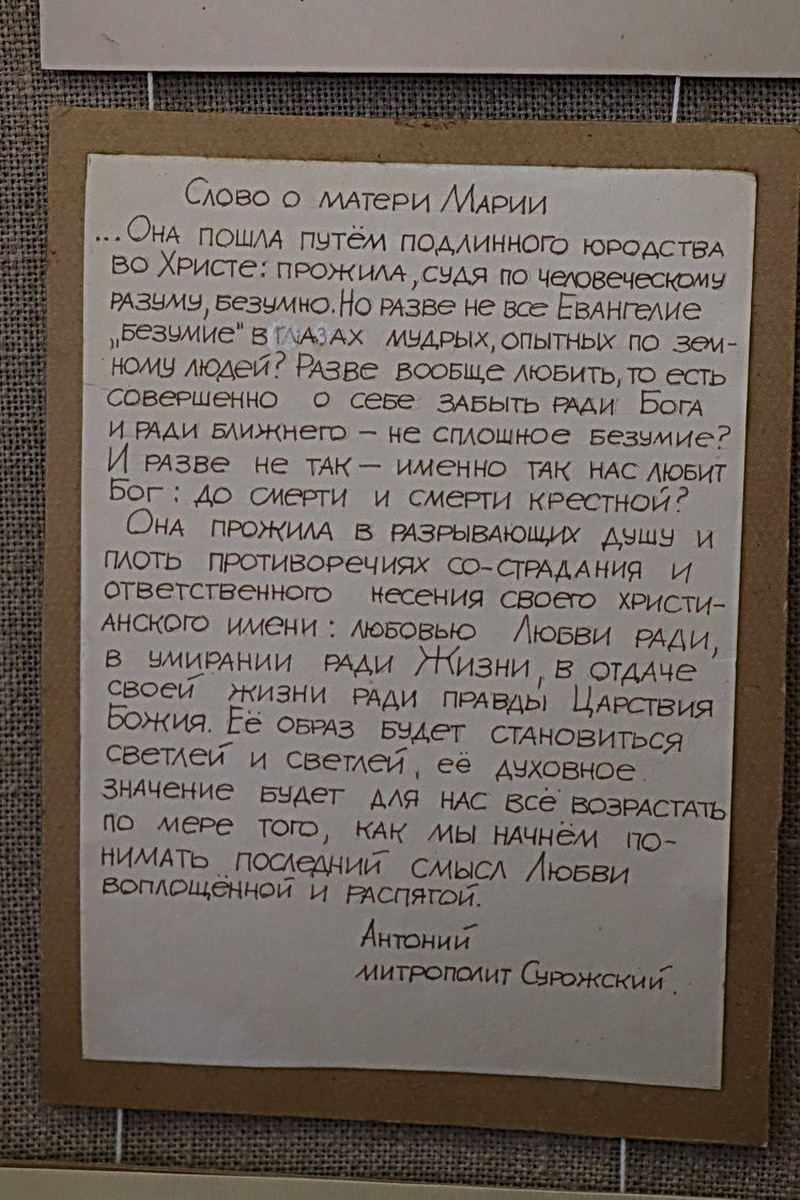 Слово о матери Марии
...Она пошла путём подлинного юродства
во Христе: прожила, судя по человеческому
разуму, безумно. Но разве не все Евангелие
„безумие" в глазах мудрых, опытных по зем-
ному людей? Разве вообще любить, то есть
совершенно о себе забыть ради Бога
и ради ближнего — не сплошное безумие?
И разве не так — именно так нас любит
Бог: до смерти и смерти крестной?
Она прожила в разрывающих душу и
плоть противоречиях со-страдания и
ответственного несения своего христи-
анского имени: любовью Любви ради,
в умирании ради Жизни, в отдаче
своей жизни ради правды Царствия
Божия. Её образ будет становиться
светлей и светлей, её духовное
значение будет для нас всё возрастать
по мере того, как мы начнём по-
нимать последний смысл Любви
воплощённой и распятой.
Антоний
митрополит Сурожский.